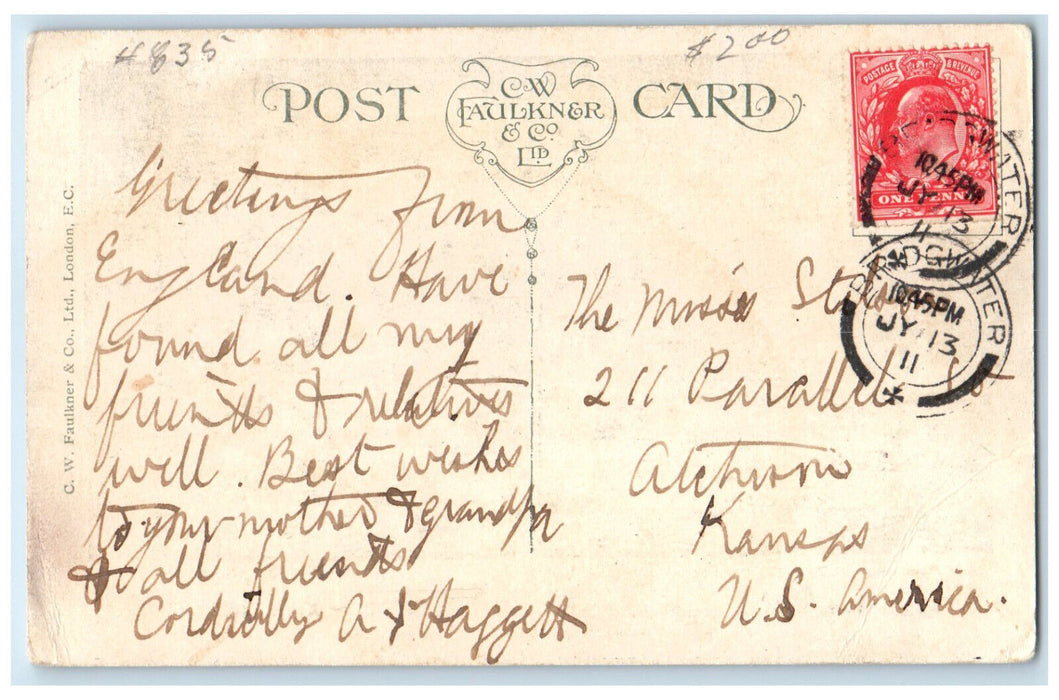 4835
$2.00
POST CARD
C.W.
FAULKNER
& Co.
LTD
POSTAGE & REVENUE
ONE PENNY
BRIDGWATER
10.45PM
JY 13
11
BRIDGWATER
10.45PM
JY 13
11
C. W. Faulkner & Co., Ltd., London, E.C.
Greetings from
England. Have
found all my
friends & relatives
well. Best wishes
to your mother & grandpa
& all friends
Cordially A Haggett
The Misses
211 Parallel St
Atchison
Kansas
U.S. America.